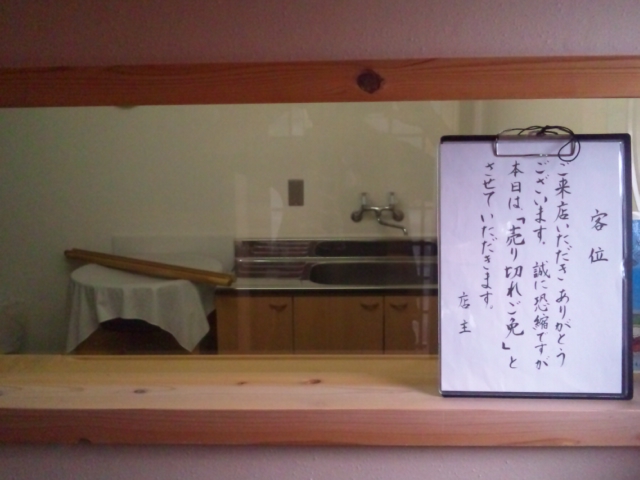 客位
ご来店いただきありがとう
ございます。誠に恐縮ですが
本日は「売り切れご免」と
させていただきます。
店主